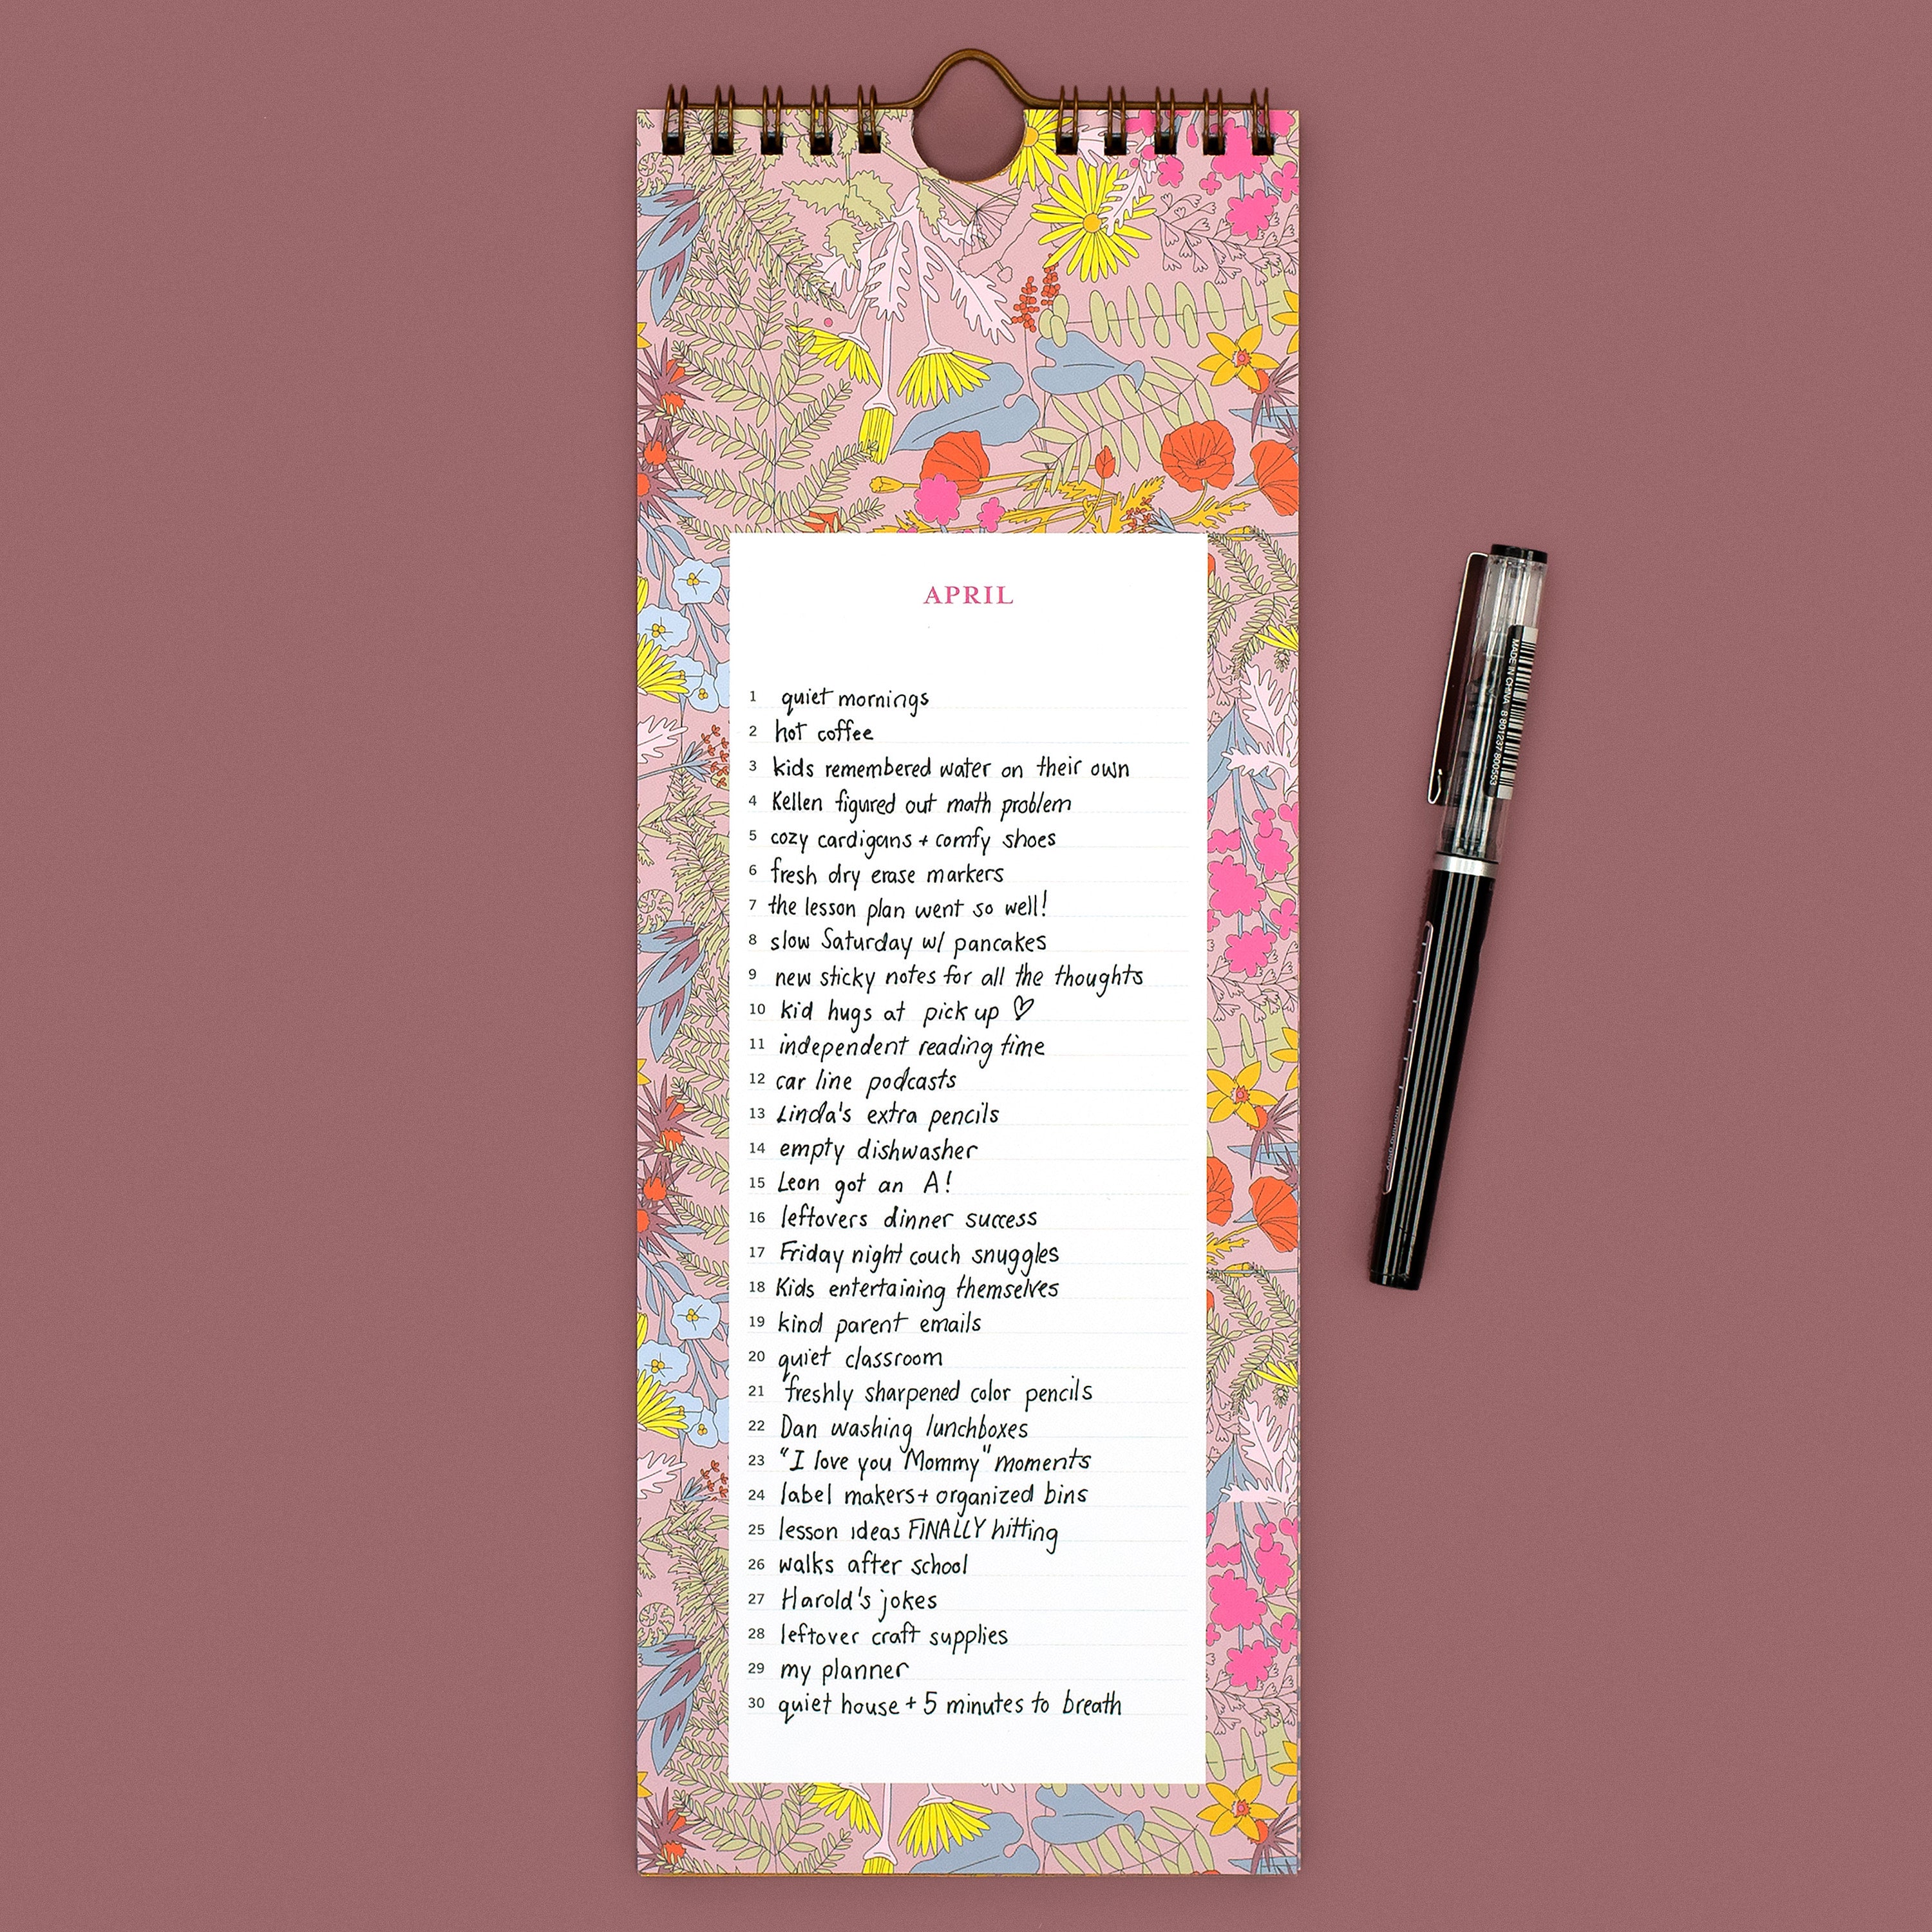 APRIL
1 quiet mornings
2 hot coffee
3 kids remembered water on their own
4 Kellen figured out math problem
5 cozy cardigans + comfy shoes
6 fresh dry erase markers
7 the lesson plan went so well!
8 slow Saturday w/ pancakes
9 new sticky notes for all the thoughts
10 kid hugs at pick up ♡
11 independent reading time
12 car line podcasts
13 Linda's extra pencils
14 empty dishwasher
15 Leon got an A!
16 leftovers dinner success
17 Friday night couch snuggles
18 Kids entertaining themselves
19 kind parent emails
20 quiet classroom
21 freshly sharpened color pencils
22 Dan washing lunchboxes
23 "I love you Mommy" moments
24 label makers + organized bins
25 lesson ideas FINALLY hitting
26 walks after school
27 Harold's jokes
28 leftover craft supplies
29 my planner
30 quiet house + 5 minutes to breath
MADE IN CHINA
8 801237 800553